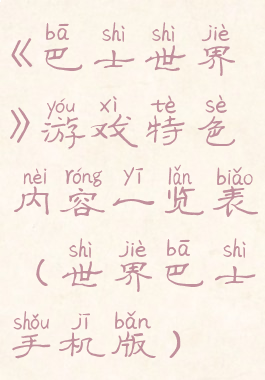 bā shì shì jiè
《巴士世界
yóu xì tè sè
》游戏特色
nèi róng yī lǎn biǎo
内容一览表
shì jiè bā shì
（世界巴士
shǒu jī bǎn
手机版）